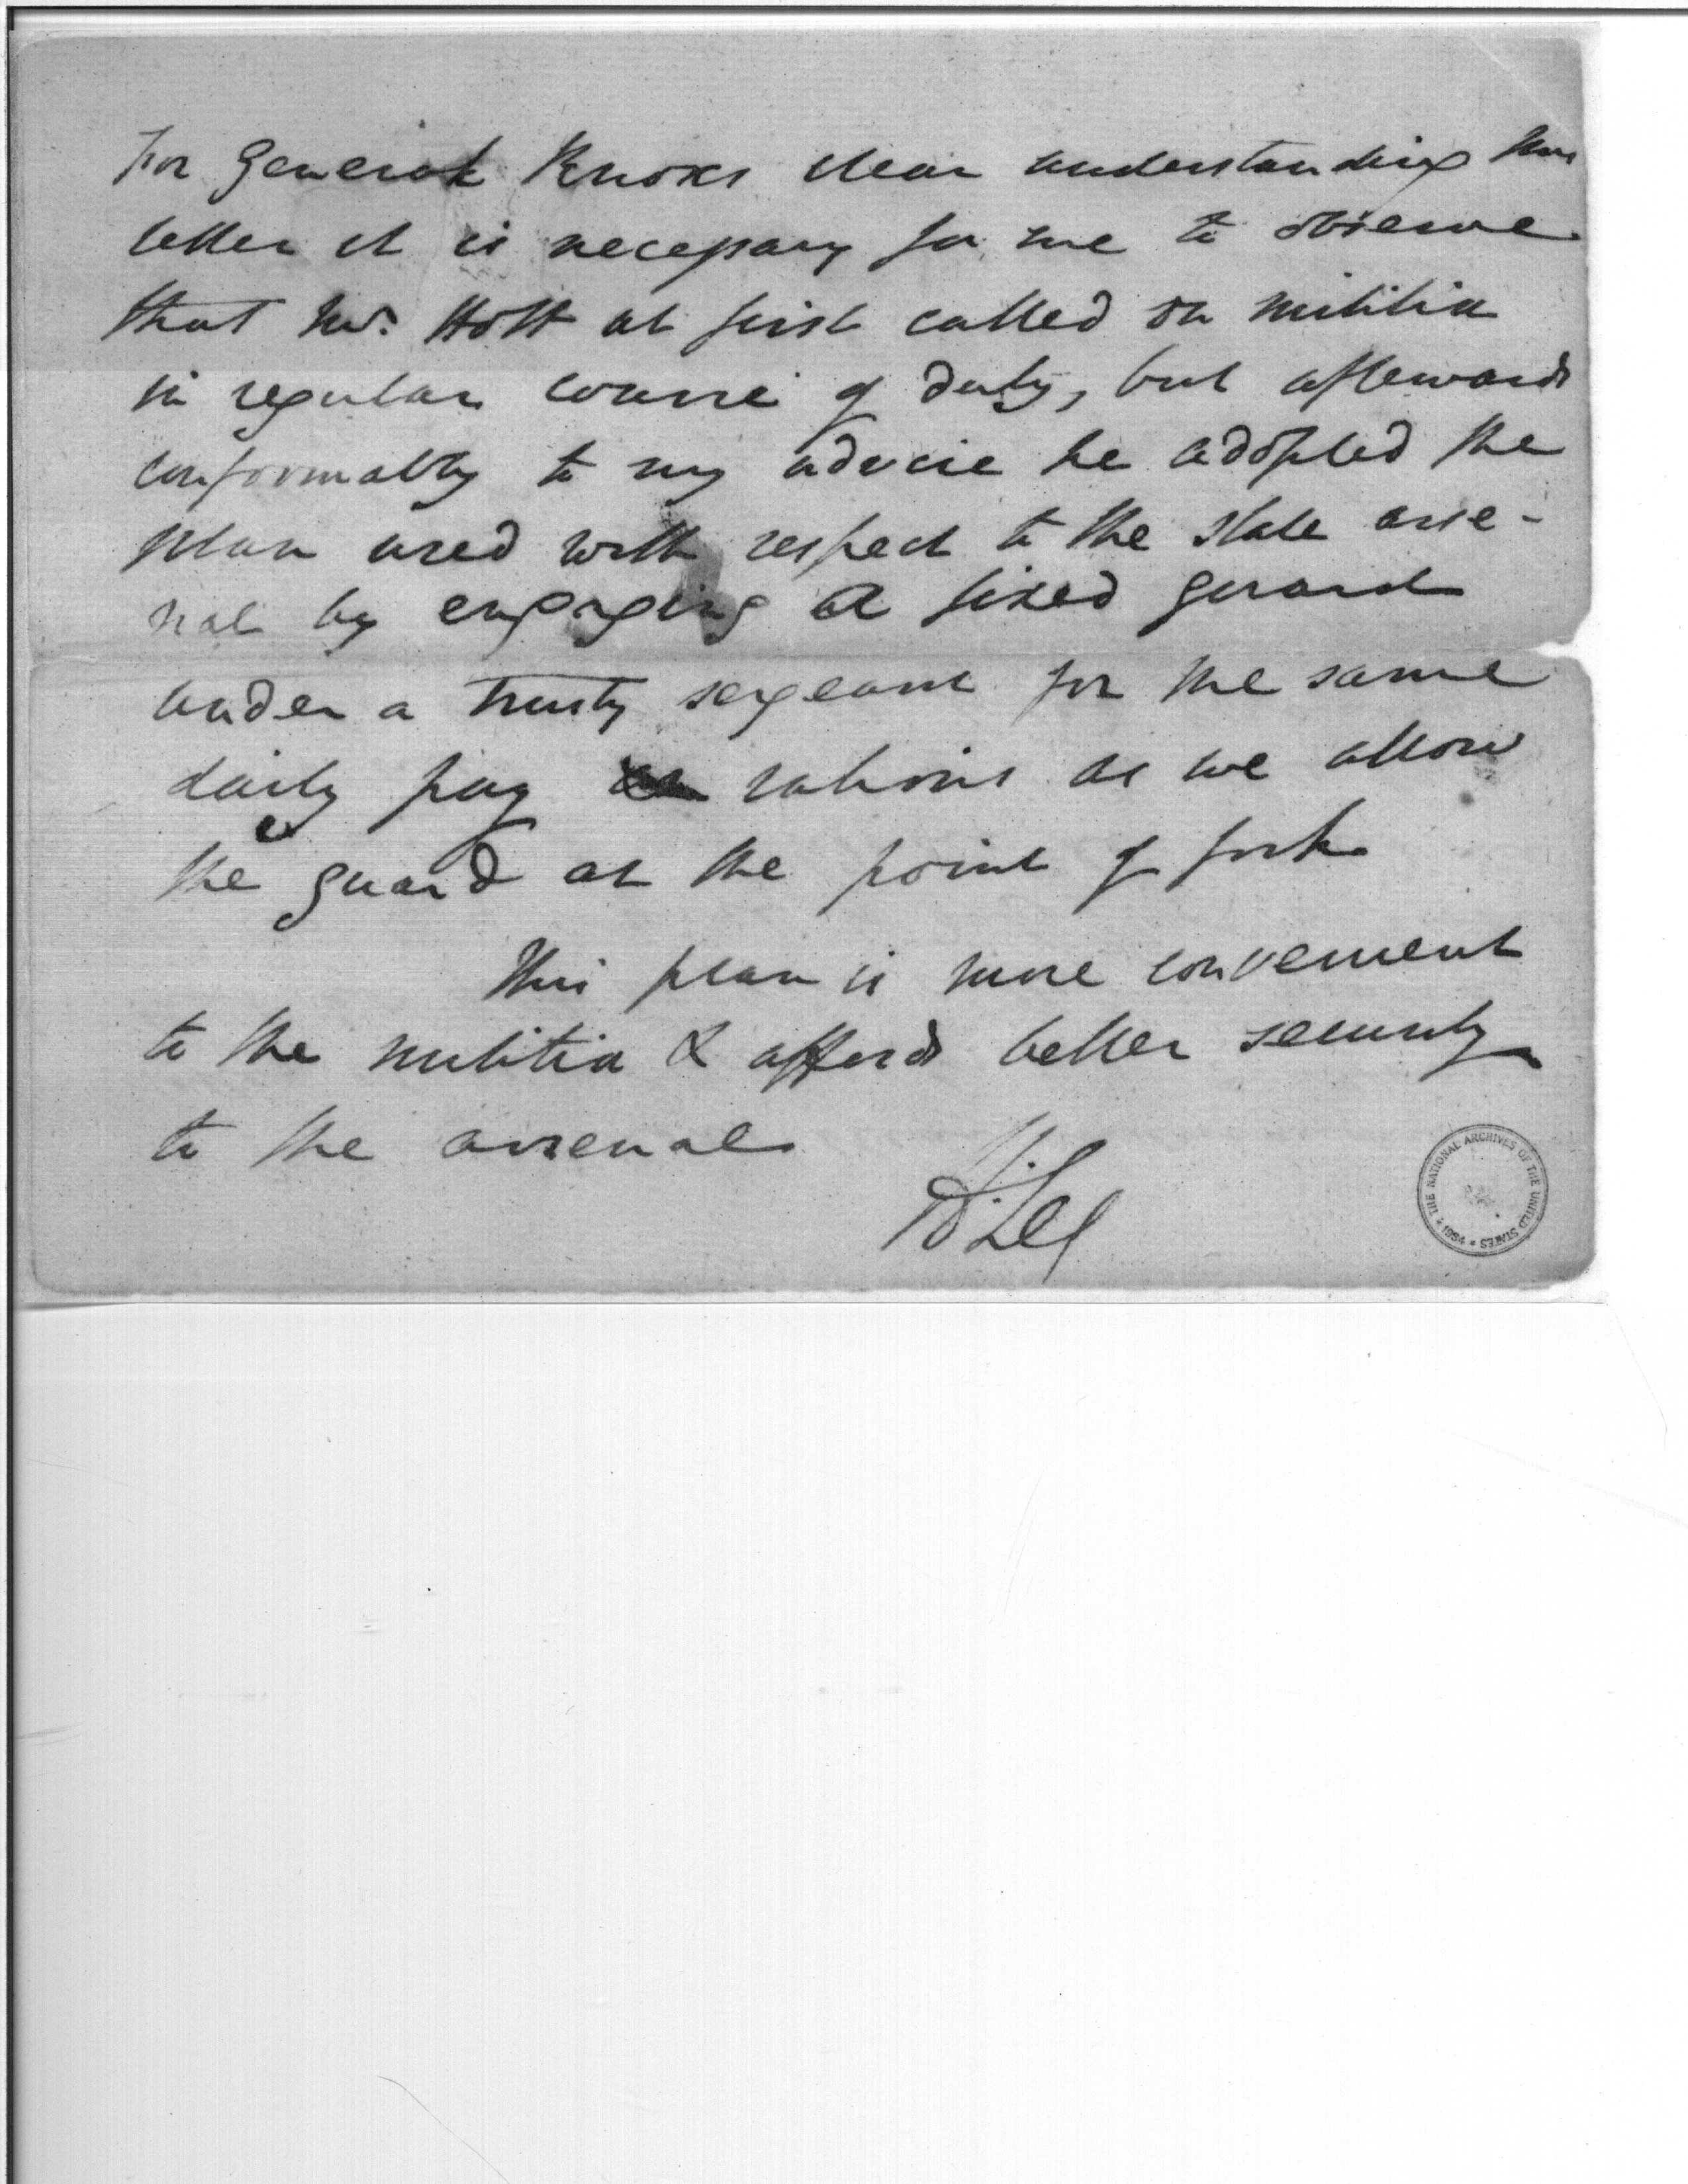 For General Knoxs clear understanding this
letter it is necessary for me to observe
that Mr. Holt at first called on militia
in regular course of duty, but afterwards
conformably to my advice he adopted the
plan used with respect to the state arse-
nal by engaging a fixed guard
under a trusty sergeant for the same
daily pay & rations as we allow
the guard at the point of fork
This plan is more convenient
to the militia & affords better security
to the arsenal.
H. Lee
THE NATIONAL ARCHIVES OF THE UNITED STATES * 1934 *